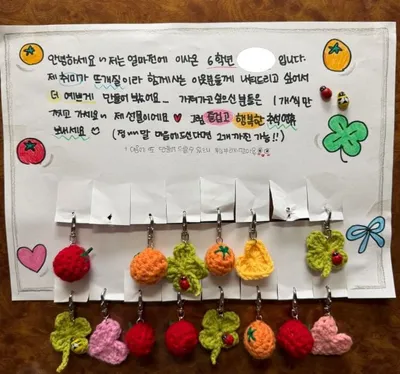 안녕하세요~ 저는 얼마전에 이사온 6학년 입니다.
제 취미가 뜨개질이라 함께사는 이웃분들께 나눠드리고 싶어서
더 예쁘게 만들어 봤어요... 가져가고싶으신 분들은 1개씩만
찍고 가져가세요 제 선물이에요 ♥ 그럼 즐겁고 행복한 추석연휴
보내세요 ☺ (정~말 마음에 드신다면 2개까진 가능!!)